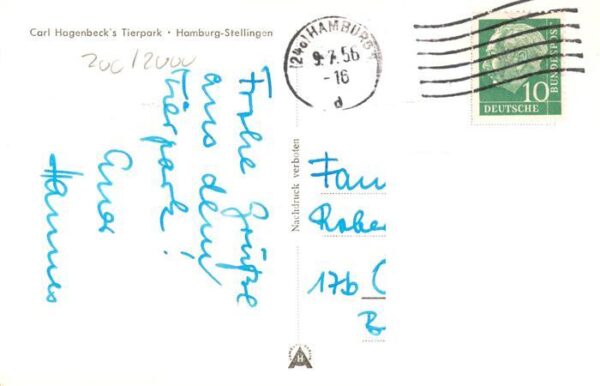 Carl Hagenbeck's Tierpark • Hamburg-Stellingen
200/2000
Frohe Grüße
aus dem
Tierpark!
Euer
Hannes
Nachdruck verboten
(24a) HAMBURG
9.7.56
-16
d
10
DEUTSCHE
BUNDESPOST
Fam
Rober
17b (
H